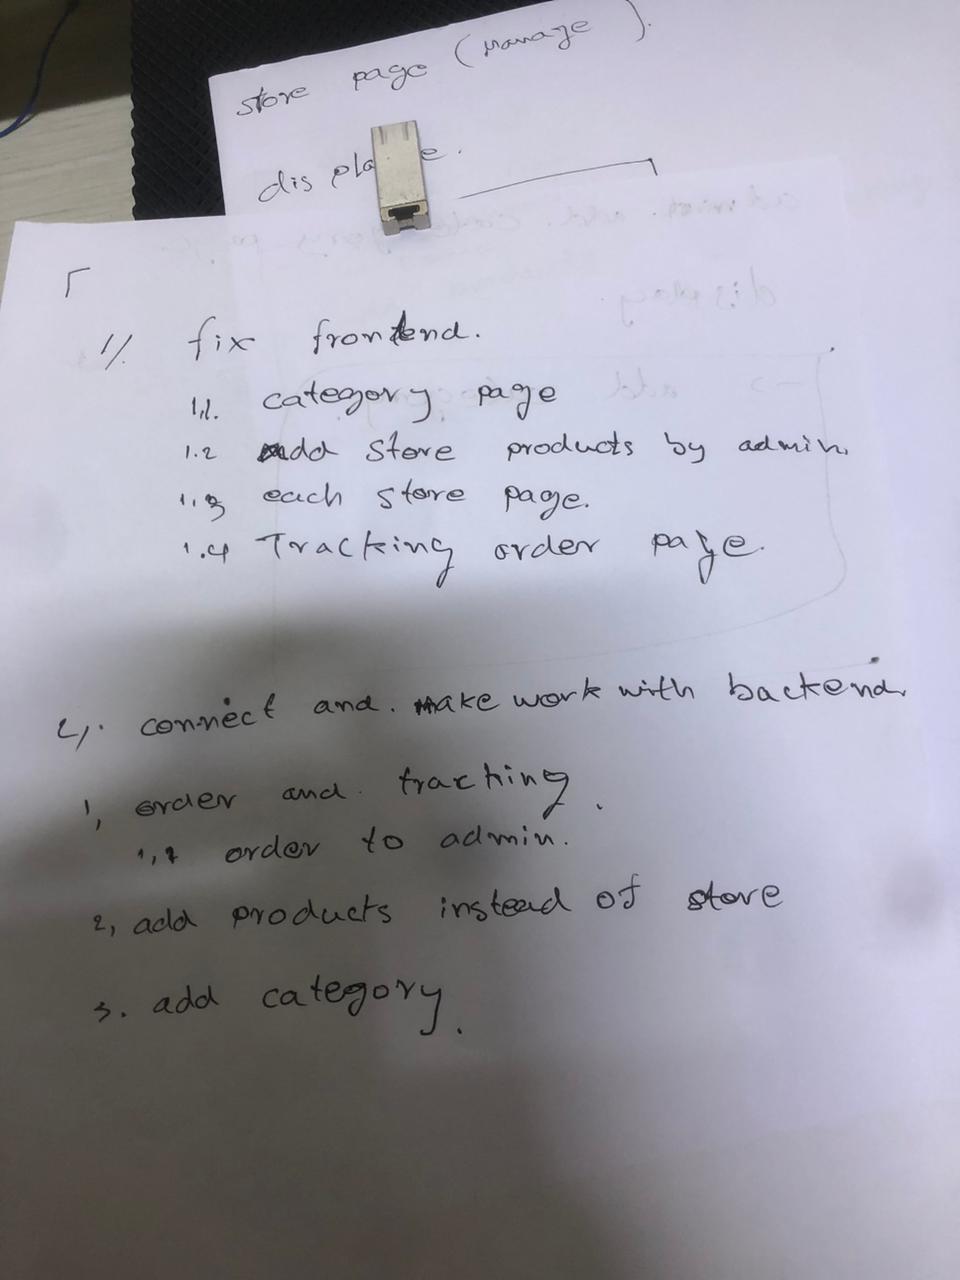 store page (manage).
1/. fix frontend.
1.1. category page
1.2 add store products by admin.
1.3 each store page.
1.4 Tracking order page.
2,. connect and. make work with backend.
1, order and. traching.
1,1 order to admin.
2, add products instead of store
3. add category.